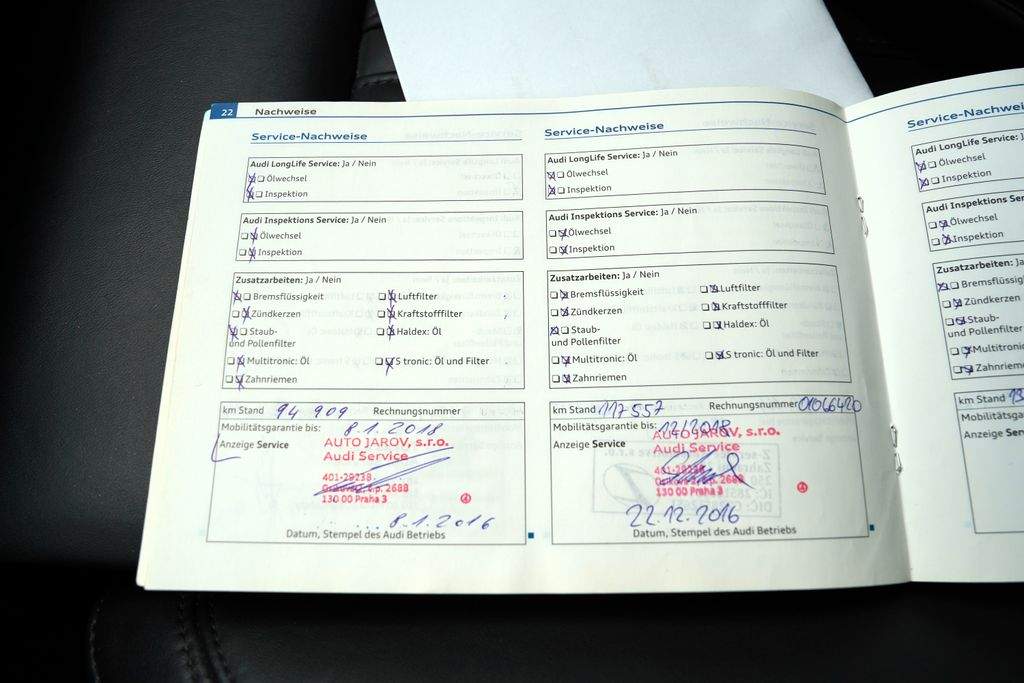 22 Nachweise
Service-Nachweise
Audi LongLife Service: Ja / Nein
Ölwechsel
Inspektion
Audi Inspektions Service: Ja / Nein
Ölwechsel
Inspektion
Zusatzarbeiten: Ja / Nein
Bremsflüssigkeit Luftfilter
Zündkerzen Kraftstofffilter
Staub- Haldex: Öl
und Pollenfilter
Multitronic: Öl S tronic: Öl und Filter
Zahnriemen
km Stand 94 909 Rechnungsnummer
Mobilitätsgarantie bis: 8.1.2018
Anzeige Service
AUTO JAROV, s.r.o.
Audi Service
401-29238
130 00 Praha 3
8.1.2016
Datum, Stempel des Audi Betriebs
Service-Nachweise
Audi LongLife Service: Ja / Nein
Ölwechsel
Inspektion
Audi Inspektions Service: Ja / Nein
Ölwechsel
Inspektion
Zusatzarbeiten: Ja / Nein
Bremsflüssigkeit Luftfilter
Zündkerzen Kraftstofffilter
Staub- Haldex: Öl
und Pollenfilter
Multitronic: Öl S tronic: Öl und Filter
Zahnriemen
km Stand 117 557 Rechnungsnummer 01066420
Mobilitätsgarantie bis: 12/2018
Anzeige Service
AUTO JAROV, s.r.o.
Audi Service
401-29238
130 00 Praha 3
22.12.2016
Datum, Stempel des Audi Betriebs
Service-Nachwei
Audi LongLife Service: J
Ölwechsel
Inspektion
Audi Inspektions Servic
Ölwechsel
Inspektion
Zusatzarbeiten: Ja
Bremsflüssigkeit
Zündkerzen
Staub-
und Pollenfilter
Multitronic
Zahnriemen
km Stand
Mobilitätsga
Anzeige Ser